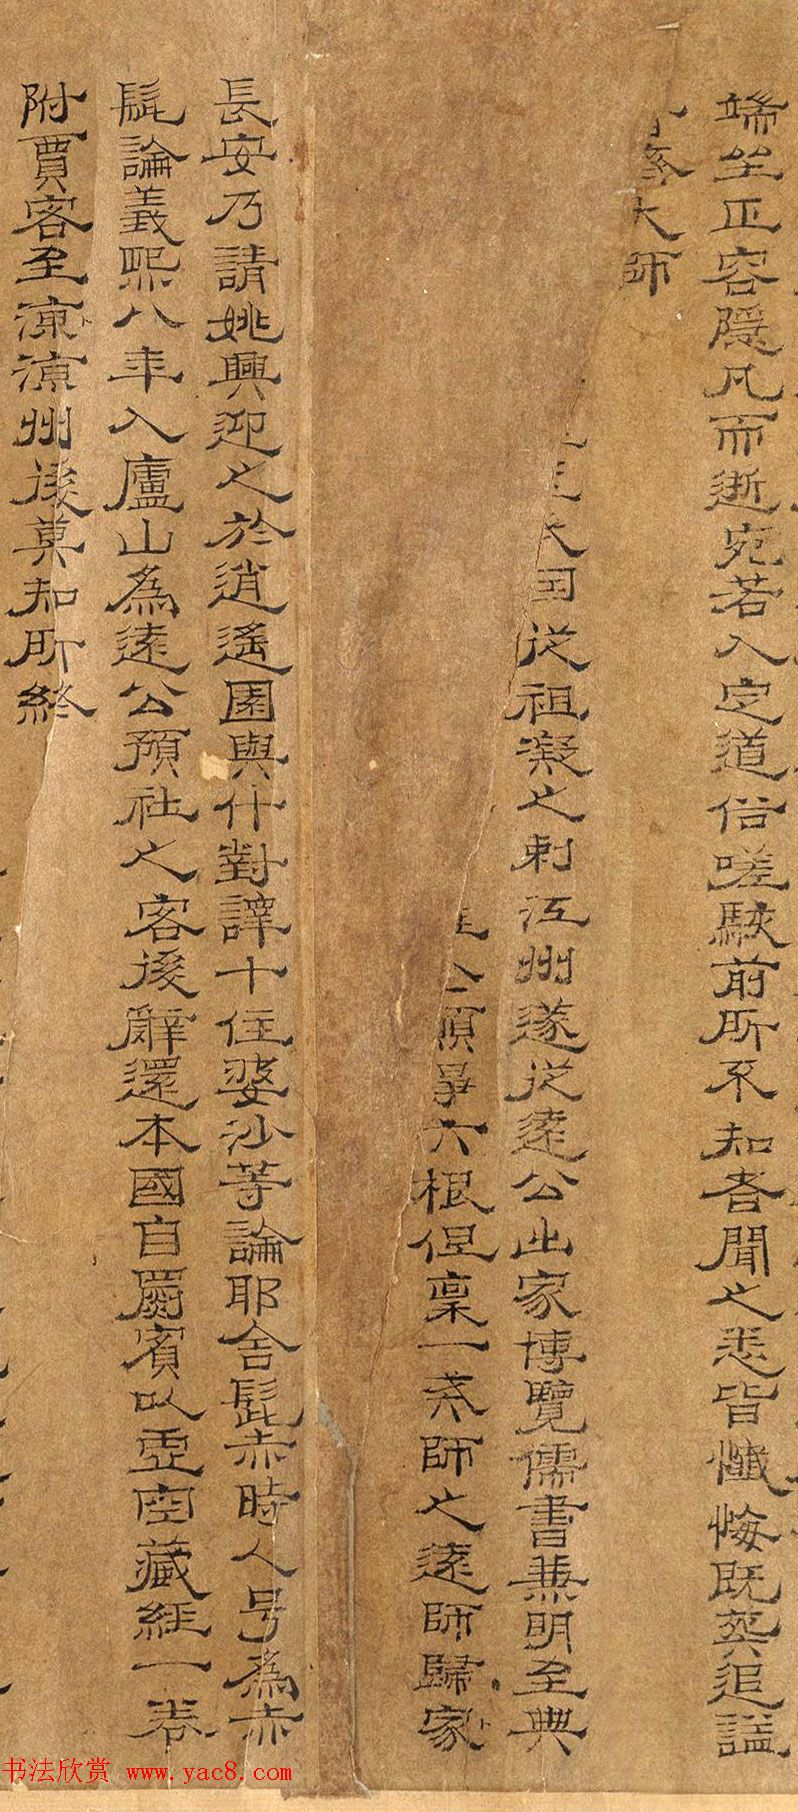 端坐正容隱几而逝宛若入定道俗嗟駭前所不知者聞之悉皆懺悔既葬追謚
大師
因從祖凝之刺江州遂從遠公出家博覽儒書兼明至典
六根但稟一戒師之遠師歸家
長安乃請姚興迎之於逍遙園與什對譯十住婆沙等論耶舍髭赤時人号為赤
髭論義熙八年入廬山為遠公預社之客後辭還本國自罽賓以虛空藏經一卷
附賈客至涼涼州後莫知所終
书法欣赏 www.yac8.com